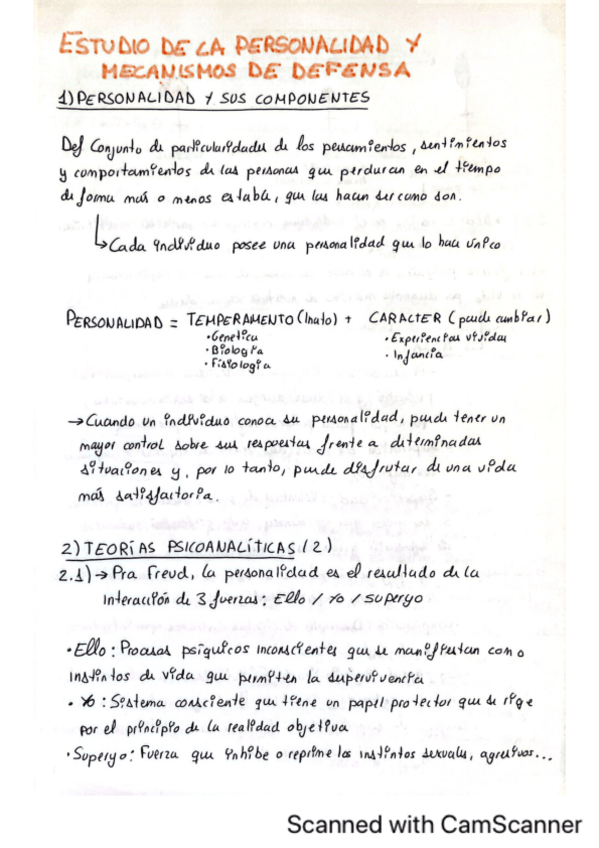 ESTUDIO DE LA PERSONALIDAD Y
MECANISMOS DE DEFENSA
1) PERSONALIDAD Y SUS COMPONENTES
Def Conjunto de particularidades de los pensamientos, sentimientos
y comportamientos de las personas que perduran en el tiempo
de forma más o menos estable, que las hacen ser como son.
↳ Cada individuo posee una personalidad que lo hace único
PERSONALIDAD = TEMPERAMENTO (Inato) + CARACTER (puede cambiar)
• Genetica • Experiencias vividas
• Biología • Infancia
• Fisiología
→ Cuando un individuo conoce su personalidad, puede tener un
mayor control sobre sus respuestas frente a determinadas
situaciones y, por lo tanto, puede disfrutar de una vida
más satisfactoria.
2) TEORÍAS PSICOANALÍTICAS (2)
2.1) → Pra Freud, la personalidad es el resultado de la
interacción de 3 fuerzas: Ello / Yo / Superyo
• Ello: Procesos psíquicos inconscientes que se manifiestan como
instintos de vida que permiten la supervivencia
• Yo: Sistema consciente que tiene un papel protector que se rige
por el principio de la realidad objetiva
• Superyo: Fuerza que inhibe o reprime los instintos sexuales, agresivos...
Scanned with CamScanner